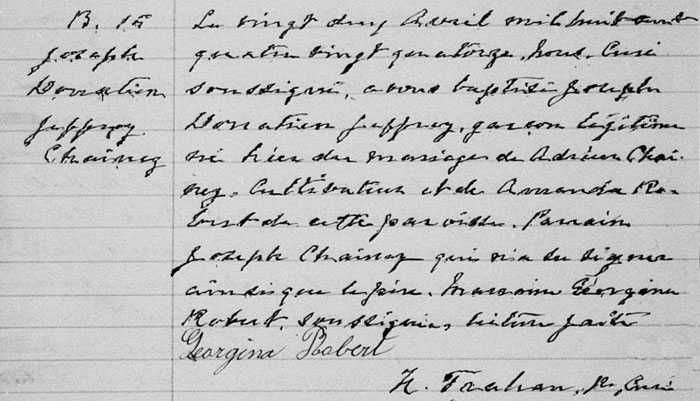 B. 15
Joseph
Donatien
Jeffrey
Chainey
Le vingt deux Avril mil huit cent
quatre vingt quatorze, nous, Curé
soussigné, avons baptisé Joseph
Donatien Jeffrey, garçon légitime
né hier du mariage de Adrien Chai-
ney, Cultivateur et de Amanda Ro-
bert de cette paroisse. Parrain
Joseph Chainey qui n'a su signer
ainsi que le père. Marraine Géorgina
Robert, soussignée, lecture faite
Georgina Robert
H. Trahan, Ptre, Curé